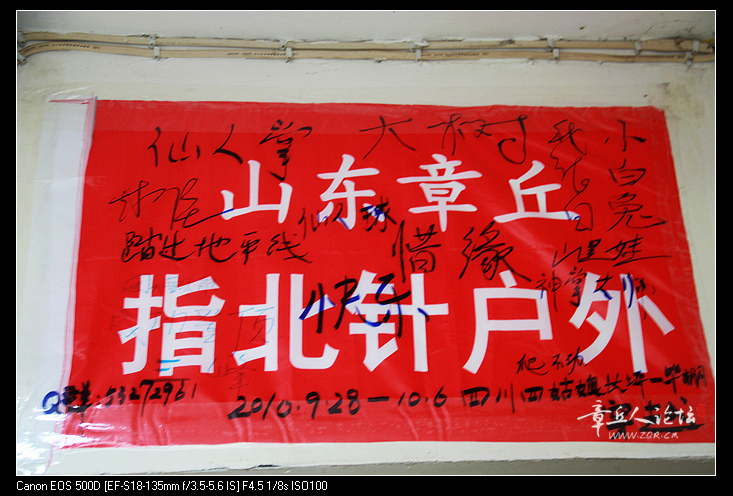 仙人掌 大树 小白兔
山东章丘
踏过地平线 仙人球 惜缘 山里娃
神掌大
快乐
指北针户外
爬不动
Q群:53272961
2010.9.28—10.6 四川四姑娘长坪—毕棚沟
章丘人论坛
WWW.ZQR.CM
Canon EOS 500D [EF-S18-135mm f/3.5-5.6 IS] F4.5 1/8s ISO100